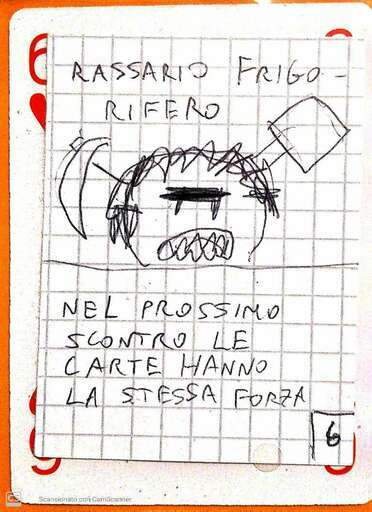 6
RASSARIO FRIGO-
RIFERO
NEL PROSSIMO
SCONTRO LE
CARTE HANNO
LA STESSA FORZA
6
6
CS
Scansionato con CamScanner